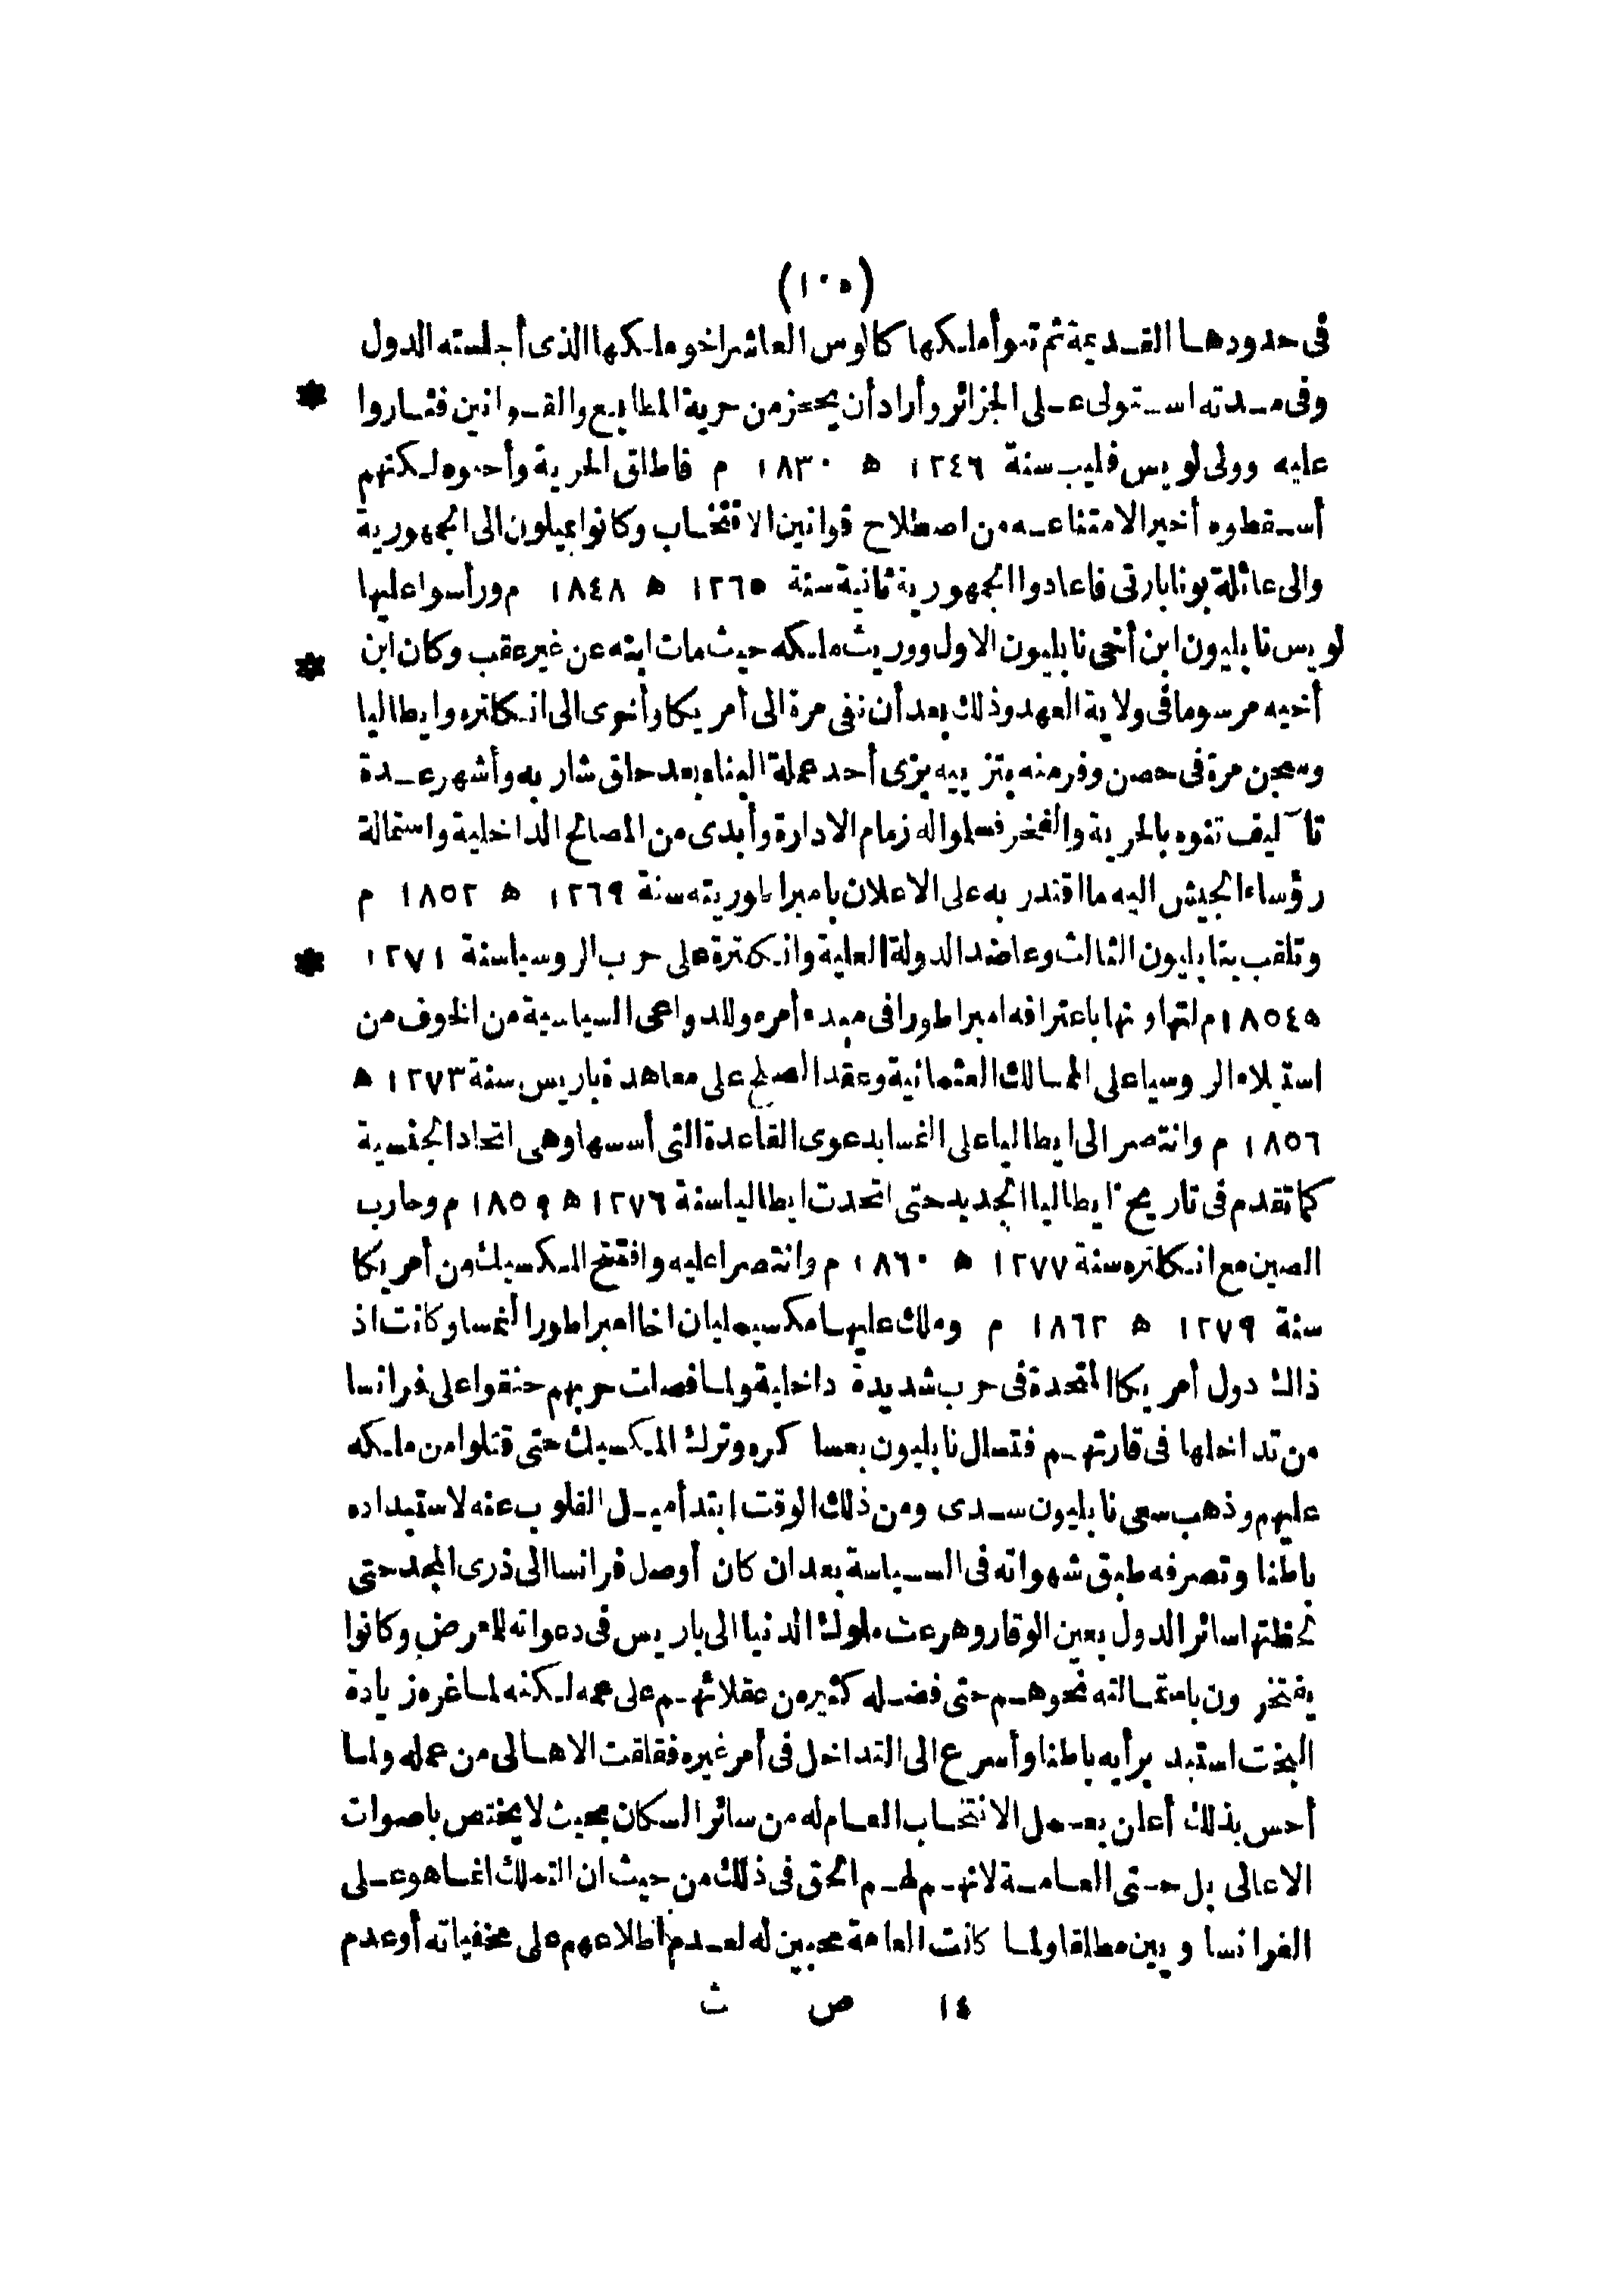 (١٠٥)
فى حدودها القديمة ثم تبوأ ملكها كالوس العاشر اخو ملكها الذى أجلسته الدول
وفى مدته استولى على الجزائر وأراد أن يحجز من حرية المطابع والقوانين فثاروا
عليه وولى لويس فليب سنة ١٢٤٦ ه ١٨٣٠ م فاطلق الحرية وأحبوه لكنهم
أسقطوه أخيرا لامتناعه من اصطلاح قوانين الانتخاب وكانوا يميلون الى الجمهورية
والى عائلة بونابارتى فاعادوا الجمهورية ثانية سنة ١٢٦٥ ه ١٨٤٨ م ورأسوا عليها
لويس نابليون ابن أخى نابليون الاول ووريث ملكه حيث مات ابنه عن غير عقب وكان ابن
أخيه مرسوما فى ولاية العهد وذلك بعد أن نفى مرة الى أمريكا وأخرى الى انكلتره وايطاليا
وسجن مرة فى حصن وفر منه بتزييه بزى أحد عملة البناء بعد حلق شاربه وأشهر عدة
تآليف تفوه بالحرية والفخر فسلموا له زمام الادارة وأبدى من المصالح الداخلية واستمالة
رؤساء الجيش اليه ما اقتدر به على الاعلان بامبراطوريته سنة ١٢٦٩ ه ١٨٥٢ م
وتلقب بنابليون الثالث وعاضد الدولة العلية وانكلترة على حرب الروسيا سنة ١٢٧١
ه ١٨٥٤ م لتهاونها باعترافه امبراطورا فى مبدء أمره وللدواعى السياسية من الخوف من
استيلاء الروسيا على الممالك العثمانية وعقد الصلح على معاهدة باريس سنة ١٢٧٣ ه
١٨٥٦ م وانتصر الى ايطاليا على النمسا بدعوى القاعدة التى أسسها وهى اتحاد الجنسية
كما تقدم فى تاريخ ايطاليا الجديد حتى اتحدت ايطاليا سنة ١٢٧٦ ه ١٨٥٩ م وحارب
الصين مع انكلتره سنة ١٢٧٧ ه ١٨٦٠ م وانتصرا عليه وافتتح المكسيك من أمريكا
سنة ١٢٧٩ ه ١٨٦٢ م وملك عليها مكسيمليان اخا امبراطور النمسا وكانت اذ
ذاك دول أمريكا المتحدة فى حرب شديدة داخلية ولما فصلت حربهم حنقوا على فرانسا
من تداخلها فى قارتهم فتسلل نابليون بعساكره وترك المكسيك حتى قتلوا من ملكه
عليهم وذهب سعى نابليون سدى ومن ذلك الوقت ابتدأ ميل القلوب عنه لاستبداده
باطنا وتصرفه طبق شهواته فى السياسة بعد ان كان أوصل فرانسا الى ذرى المجد حتى
لحظتها سائر الدول بعين الوقار وهرعت ملوك الدنيا الى باريس فى دعواته للمعرض وكانوا
يفتخرون باستمالته نحوهم حتى فضله كثير من عقلائهم على عمه لكنه لما غره زيادة
البخت استبد برأيه باطنا وأسرع الى التداخل فى أمر غيره فقلقت الاهالى من عمله ولما
أحس بذلك أعلن بعمل الانتخاب العام له من سائر السكان بحيث لا يختص باصوات
الاعالى بل حتى العامة لانهم لهم الحق فى ذلك من حيث ان التملك انما هو على
الفرانساويين مطلقا ولما كانت العامة محبين له لعدم اطلاعهم على مخفياته أو عدم
١٤ ص ث